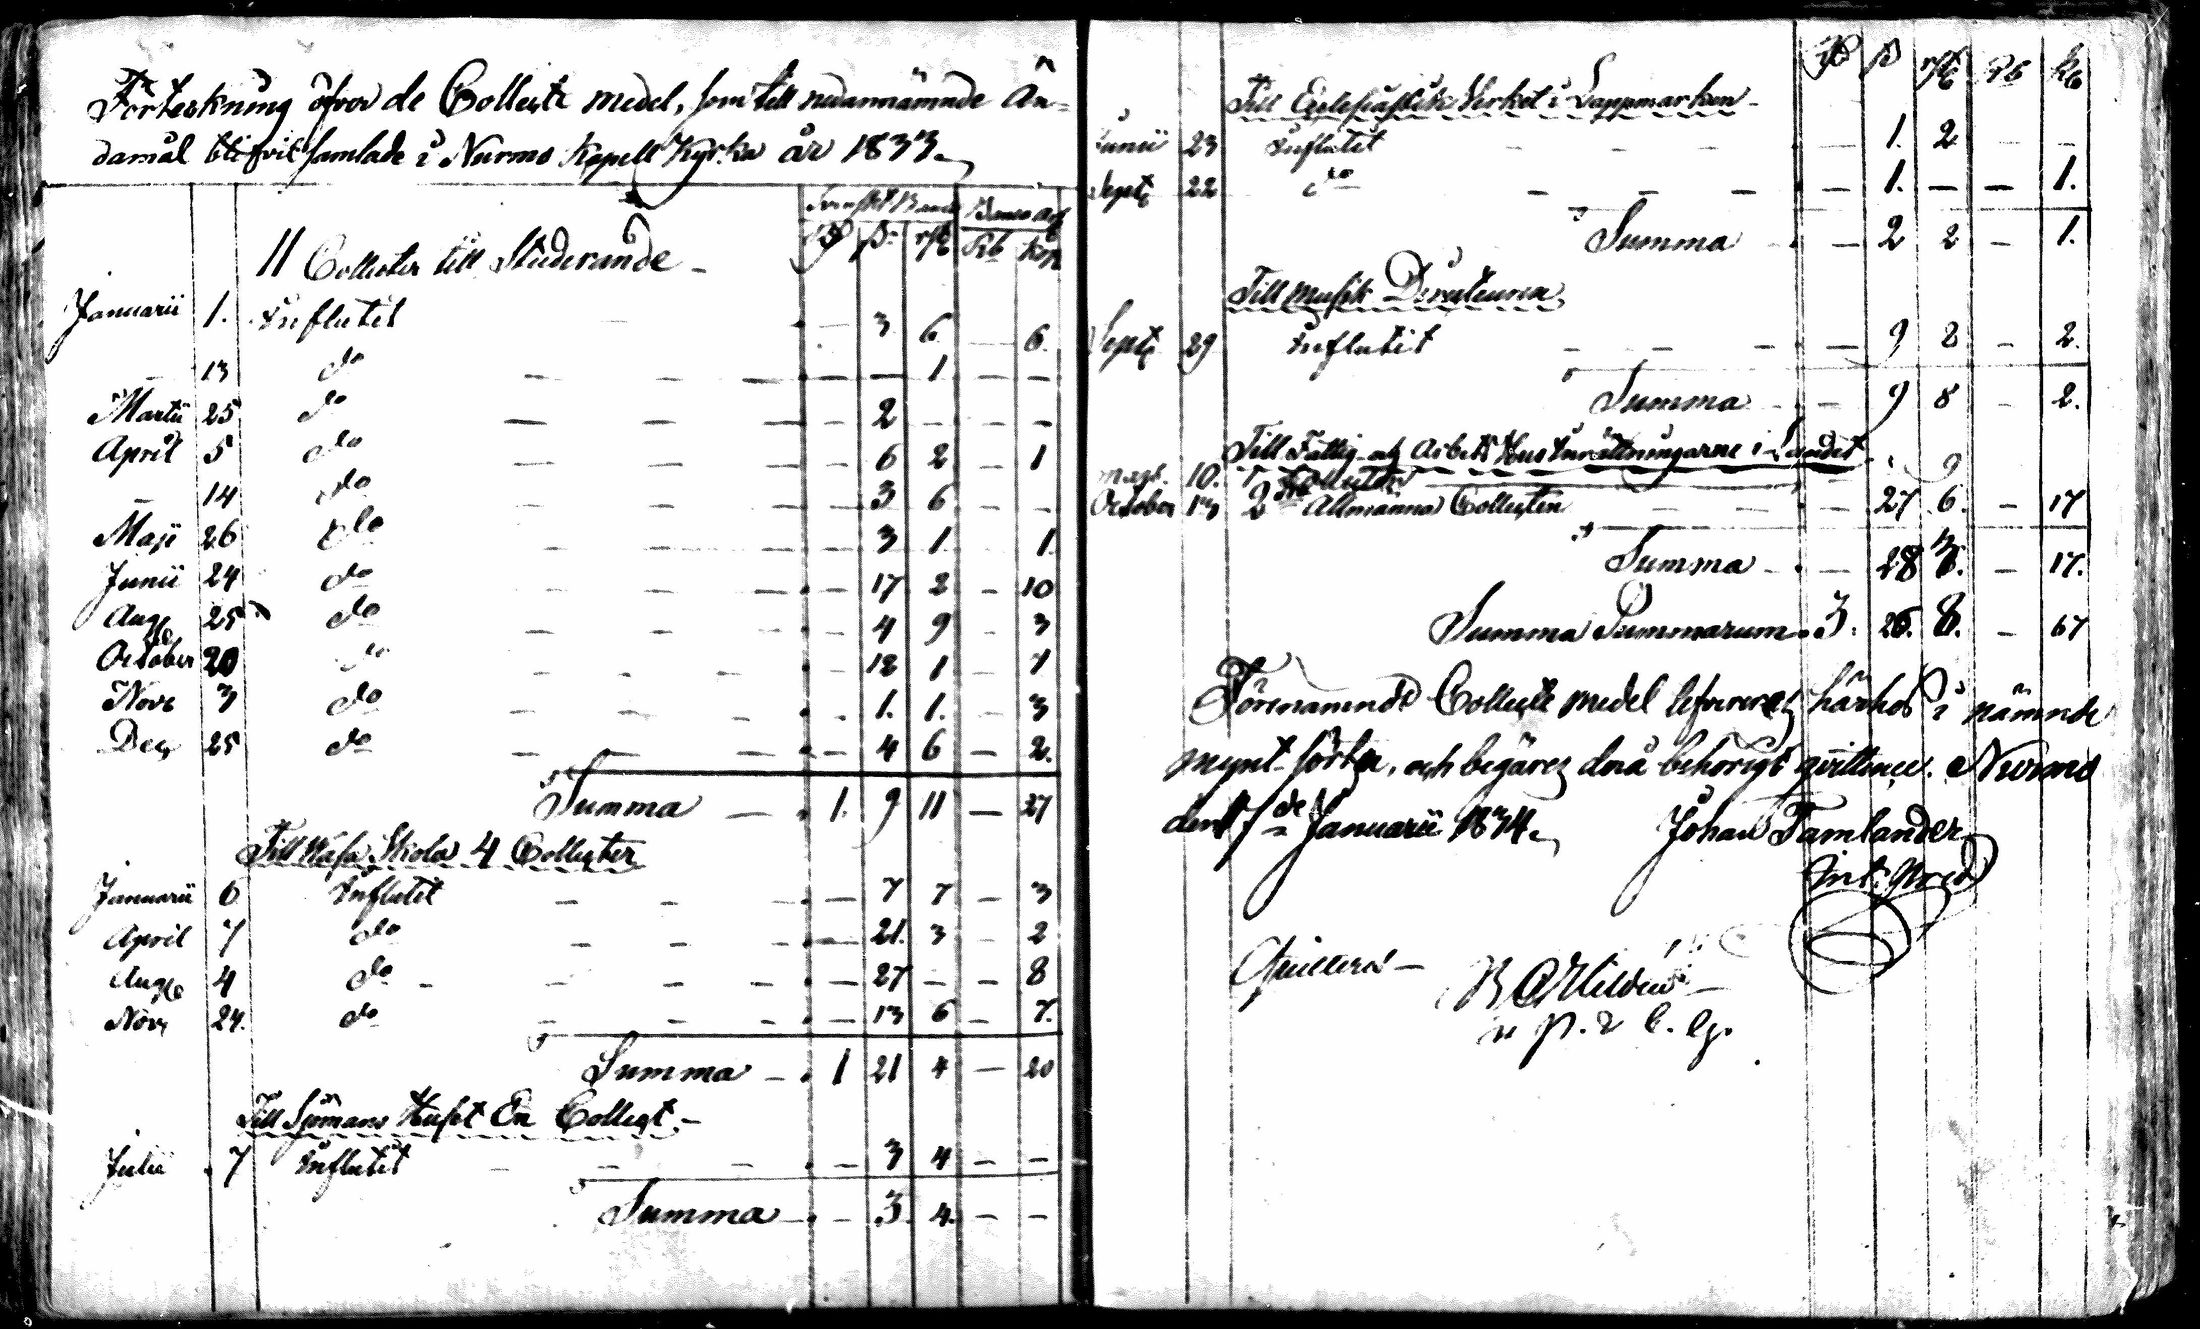 Förteckning öfver de Collect medel, som till nedannämnde Än-
damål blifvit samlade i Nurmo Kapell Kyrka år 1833.
Svenskt Banco Banco Ass
Rb Kop
11 Collecter till Studerande -
Januarii 1. Influtit — 3 6 — 6.
— 13 do — — 1 — —
Martii 25 do — 2 — — —
April 5 do — 6 2 — 1
— 14 do — 3 6 — —
Maji 26 do — 3 1 — 1
Junii 24 do — 17 2 — 10
Aug 25 do — 4 9 — 3
October 20 do — 12 1 — 1
Nov 3 do — 1. 1. — 3
Dec 25 do — 4 6 — 2.
Summa — 1. 9 11 — 27
Till Wasa Skola 4 Collecter
Januarii 6 Influtit — 7 7 — 3
April 7 do — 21. 3 — 2
Aug 4 do — 27 — — 8
Nov 24. do — 13 6 — 7.
Summa — 1 21 4 — 20
Till Sjömans Huset En Collect. -
Julii 7 Influtit — 3 4 — —
Summa — 3. 4. — —
Rb K
Till Ecclesiastik Verket i Lappmarken -
Junii 23 Influtit — 1. 2 — —
Sept 22 do — 1. — — 1.
Summa — 2 2 — 1.
Till Musik Directeuren,
Sept 29 Influtit — 9 8 — 2.
Summa — 9 8 — 2.
Till Fattig och Arbets Hus Inrättningarne i Landet
10. 1 Collecten 9
October 13 2 Allmänna Collecten — 27 6. — 17
Summa — 28 3. — 17.
Summa Summarum 3. 26. 8. — 67
Förenämnde Collect medel levereras härhos i nämnde
mynt sorter, och begäres derå behörigt qvittence. Nurmo
den 7de Januarii 1834. Johan Tamlander
Quitteras —